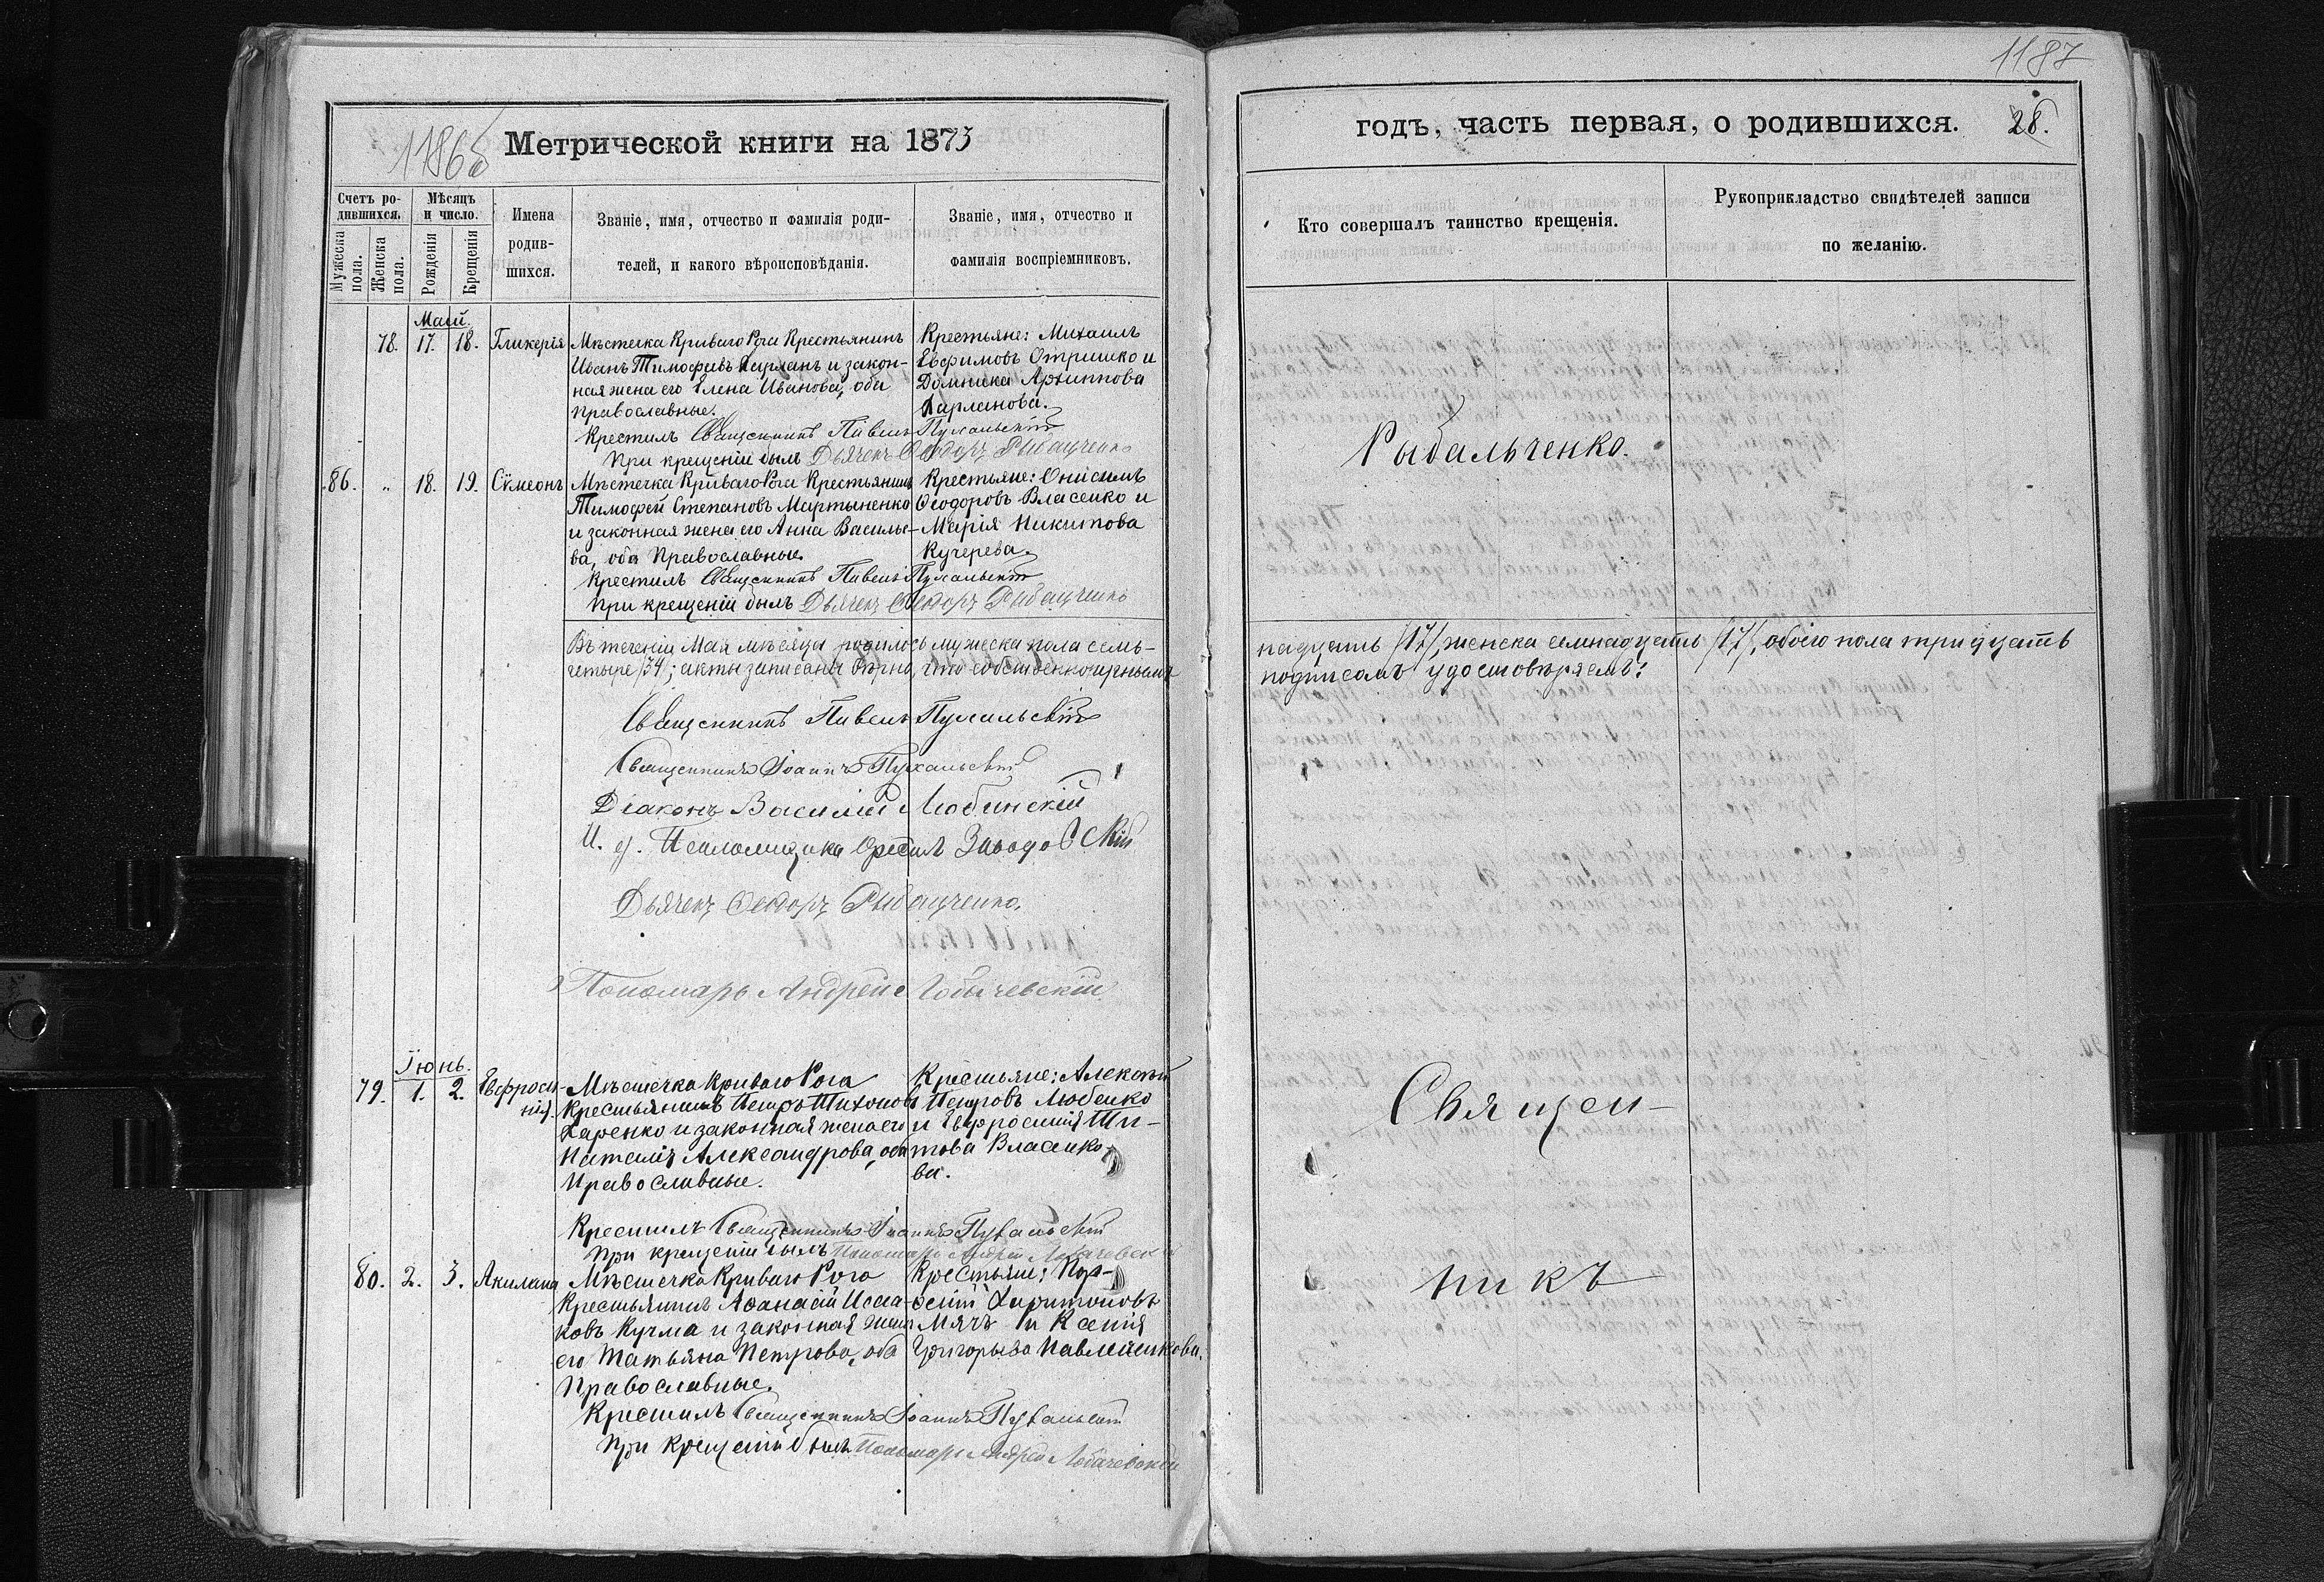 1187
1186б
Метрической книги на 1873
годъ, часть первая, о родившихся. 28.
Счетъ ро-
дившихся.
Мужеска пола.
Женска пола.
Мѣсяцъ
и число.
Рожденія
Крещенія
Имена
родив-
шихся.
Званіе, имя, отчество и фамилія роди-
телей, и какого вѣроисповѣданія.
Званіе, имя, отчество и
фамилія воспріемниковъ.
Кто совершалъ таинство крещенія.
Рукоприкладство свидѣтелей записи
по желанію.
Май.
78. 17. 18. Гликерія
Мѣстечка Криваго Рога Крестьянинъ
Иванъ Тимофеевъ и закон-
ная жена его Елена Иванова, оба
православные.
Крестьяне: Михаилъ
Евфимовъ Отришко и
Домника Архиппова
Харланова.
Крестилъ Священникъ Павелъ Пухальскій
При крещеніи былъ Дьячекъ Ѳеодоръ Рыбальченко
Рыбальченко.
86. „ 18. 19. Сѵмеонъ
Мѣстечка Криваго Рога Крестьянинъ
Тимофей Степановъ Мартыненко
и законная жена его Анна Василье-
ва, оба Православные.
Крестьяне: Онисимъ
Ѳеодоровъ Власенко и
Марія Никитова
Кучерева.
Крестилъ Священникъ Павелъ Пухальскій
При крещеніи былъ Дьячекъ Ѳеодоръ
Въ теченіи Мая мѣсяца родилось мужеска пола семь-
надцать /17/, женска семнадцать /17/, обоего пола тридцать
четыре /34/; акты записаны вѣрно, что собственноручнымъ
подписомъ удостовѣряемъ:
Священникъ Павелъ Пухальскій
Священникъ Іоаннъ Пухальскій
Діаконъ Василій Любинскій
И. д. Псаломщика Заводовскій
Дьячекъ Ѳеодоръ
Пономарь Андрей Лобачевскій
Іюнь.
79. 1. 2. Евфроси-
нія.
Мѣстечка Криваго Рога
Крестьянинъ Петръ Тихоновъ
Харенко и законная жена его
Наталія Александрова, оба
Православные.
Крестьяне: Алексѣй
Петровъ Любенко
и Евфросинія Ти-
това Власенко-
ва.
Крестилъ Священникъ Іоаннъ Пухальскій
При крещеніи былъ Пономарь Андрей Лобачевскій
Священ-
80. 2. 3. Акилина
Мѣстечка Криваго Рога
Крестьянинъ Аѳанасій Исаа-
ковъ Кучма и законная жена
его Татьяна Петрова, оба
Православные.
Крестьяне: Пор-
фирій Харитоновъ
Мячъ и Ксенія
Григорьева Павленкова.
Крестилъ Священникъ Іоаннъ Пухальскій
При крещеніи былъ Пономарь Андрей Лобачевскій
никъ